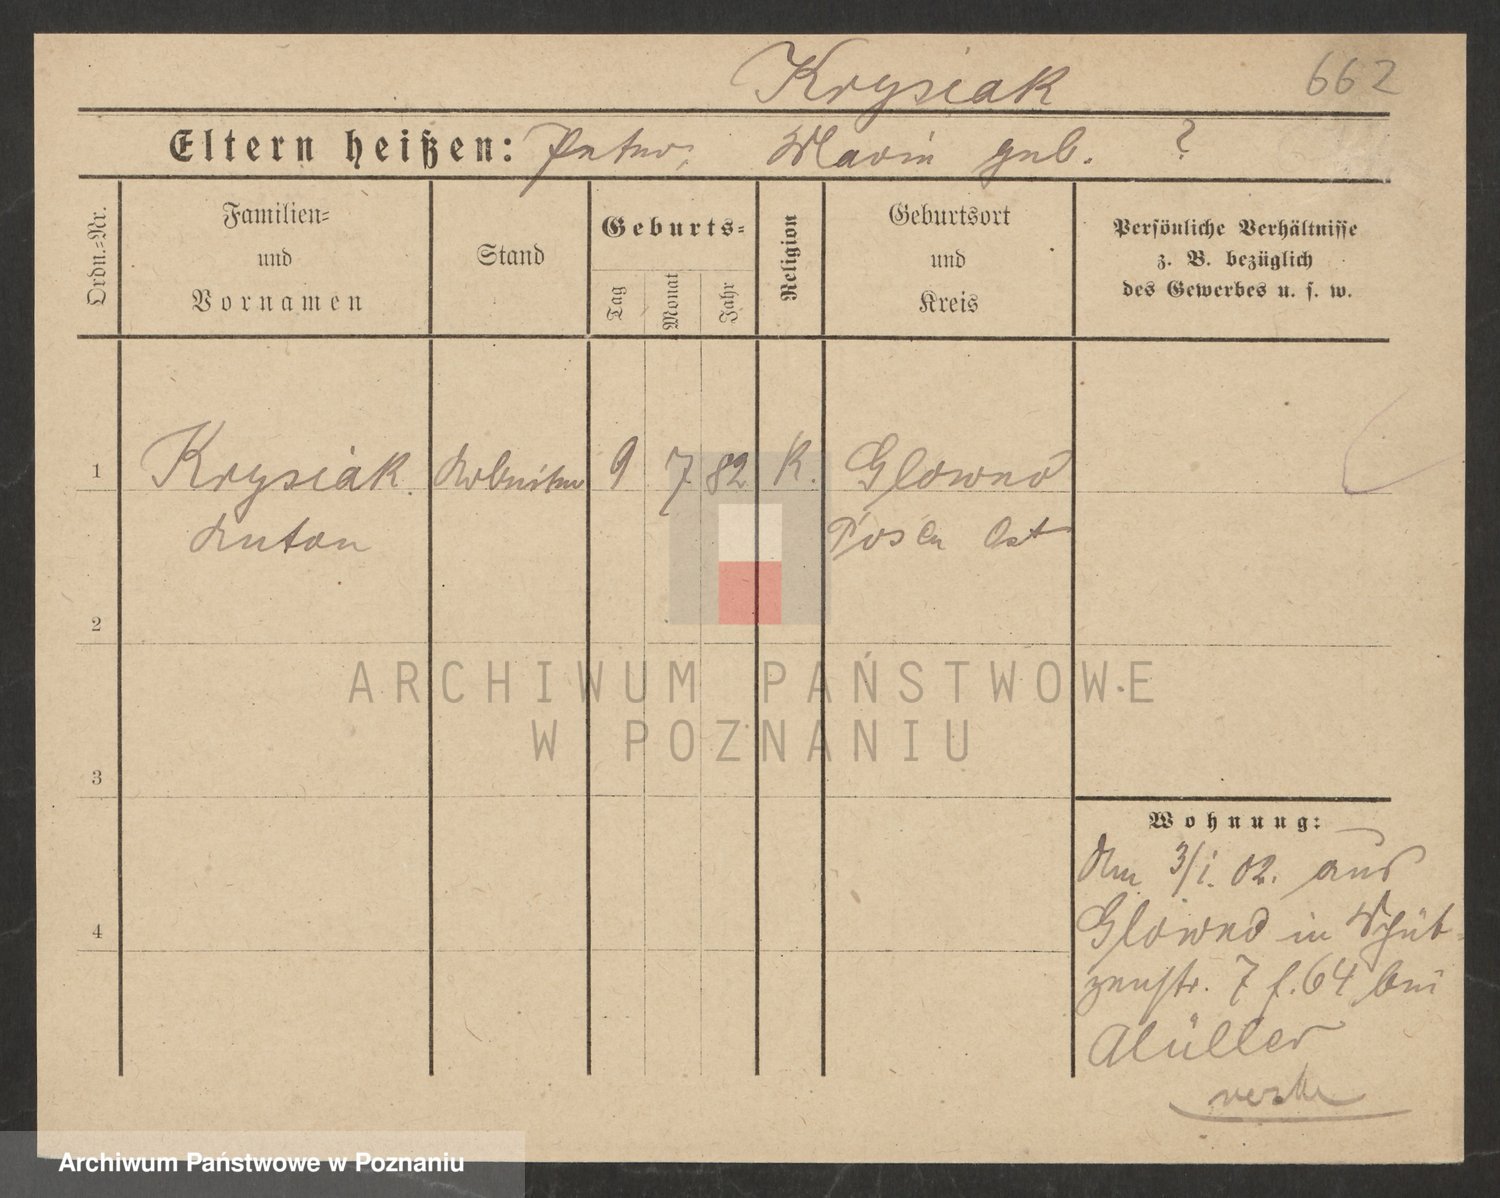 Krysiak 662
Eltern heißen: Peter, Marie geb. ?
Ordn.=Nr.
Familien=
und
Vornamen
Stand
Geburts=
Tag
Monat
Jahr
Religion
Geburtsort
und
Kreis
Persönliche Verhältnisse
z. B. bezüglich
des Gewerbes u. s. w.
1 Krysiak Arbeiter 9 7 82 K. Glowno
Anton Posen Ost
2
ARCHIWUM PAŃSTWOWE
W POZNANIU
3
Wohnung:
Am 3/1. 02. aus
Glowno in Schüt-
zenstr. 7 f. 64 bei
Müller
4
Archiwum Państwowe w Poznaniu